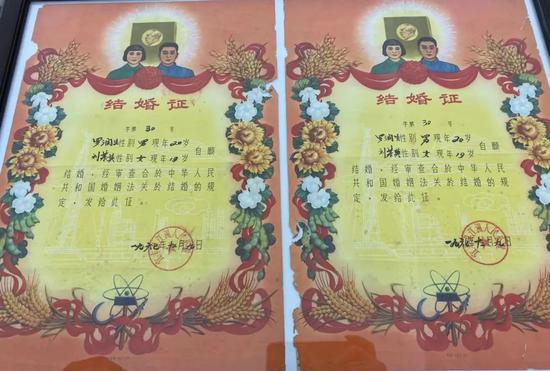 结婚证
字第 30 号
性别 男 现年 20 岁
性别 女 现年 19 岁 自願
结婚，经审查合於中华人民
共和国婚姻法关於结婚的规
定，发给此证。
一九六 年 月 日
结婚证
字第 30 号
性别 男 现年 20 岁
性别 女 现年 19 岁 自願
结婚，经审查合於中华人民
共和国婚姻法关於结婚的规
定，发给此证。
一九六 年 月 日